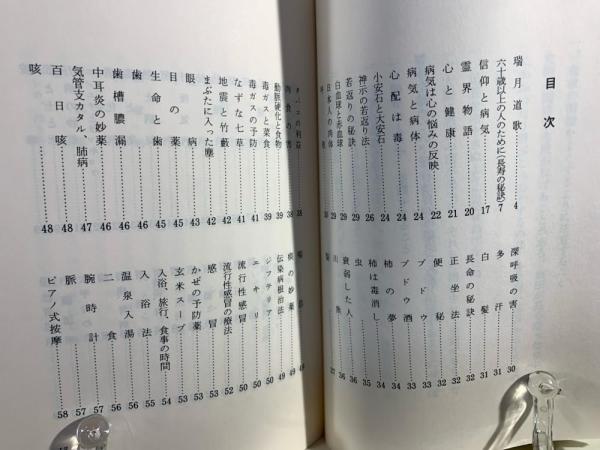 目次
瑞月道歌 4
六十歳以上の人のために(長寿の秘訣) 7
信仰と病気 17
霊界物語 20
心と健康 21
病気は心の悩みの反映 22
病気と病体 24
心配は毒 24
小安石と大安石 24
神示の若返り法 26
若返りの秘訣 29
白血球と赤血球 29
日本人の肉体
深呼吸の害 30
多汗 31
白髪 31
長命の秘訣 32
正坐法 32
便秘 32
ブドウ 33
ブドウ酒 34
柿の夢 34
柿は毒消し 35
虫 36
衰弱した人 36
肉食の害 38
動脈硬化と食物 39
毒ガスと菜食 39
毒ガスの予防 41
なずな七草 41
地震と竹藪 42
まぶたに入った塵 42
眼病 43
目の薬 43
生命と歯 45
歯 45
歯槽膿漏 46
中耳炎の妙薬 47
気管支カタル、肺病 47
百日咳 48
咳 48
痰の妙薬 49
伝染病根治法 49
ジフテリア 50
ニキリ 50
流行性感冒 50
流行性感冒の療法 52
感冒 53
かぜの予防薬 53
玄米スープ 53
入浴、旅行、食事の時間 54
入浴法 55
温泉入湯 56
二食 56
腕時計 57
脈 57
ピアノ式按摩 58